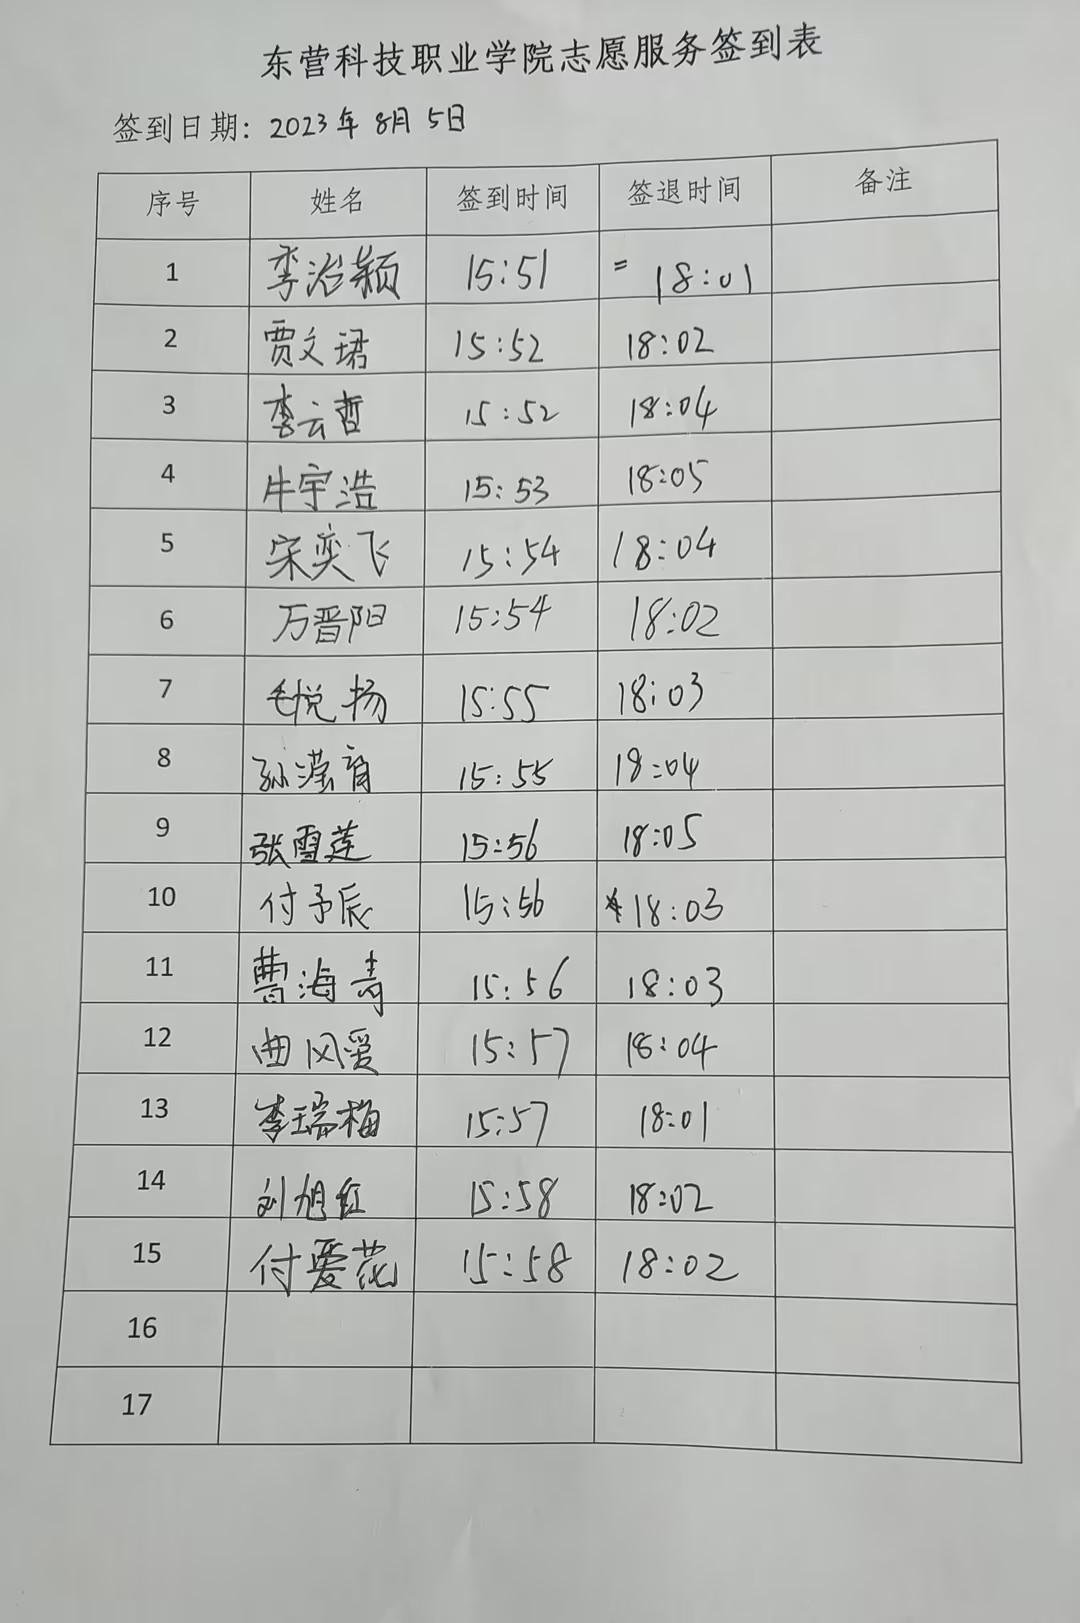 东营科技职业学院志愿服务签到表
签到日期：2023年 8月 5日
序号 姓名 签到时间 签退时间 备注
1 李治颖 15:51 = 18:01
2 贾文珺 15:52 18:02
3 李云哲 15:52 18:04
4 牛宇浩 15:53 18:05
5 宋奕飞 15:54 18:04
6 万晋阳 15:54 18:02
7 毛悦扬 15:55 18:03
8 孙滢 15:55 18:04
9 张雪莲 15:56 18:05
10 付予辰 15:56 18:03
11 曹海青 15:56 18:03
12 曲风爱 15:57 18:04
13 李瑞梅 15:57 18:01
14 刘旭红 15:58 18:02
15 付爱花 15:58 18:02
16
17